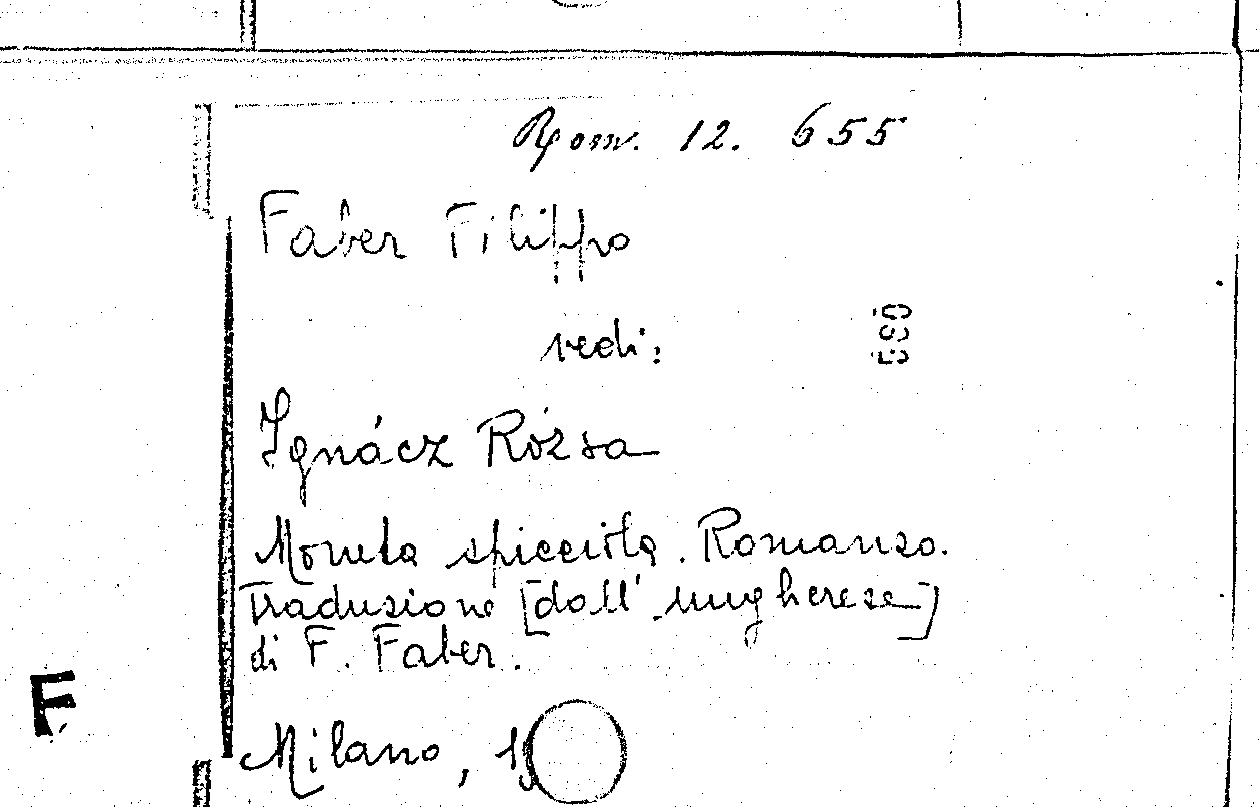 Rom. 12. 655
Faber Filippo
vedi:
Ignácz Rózsa
Moneta spicciola. Romanzo.
Traduzione [dall' ungherese]
di F. Faber.
F
Milano, 19